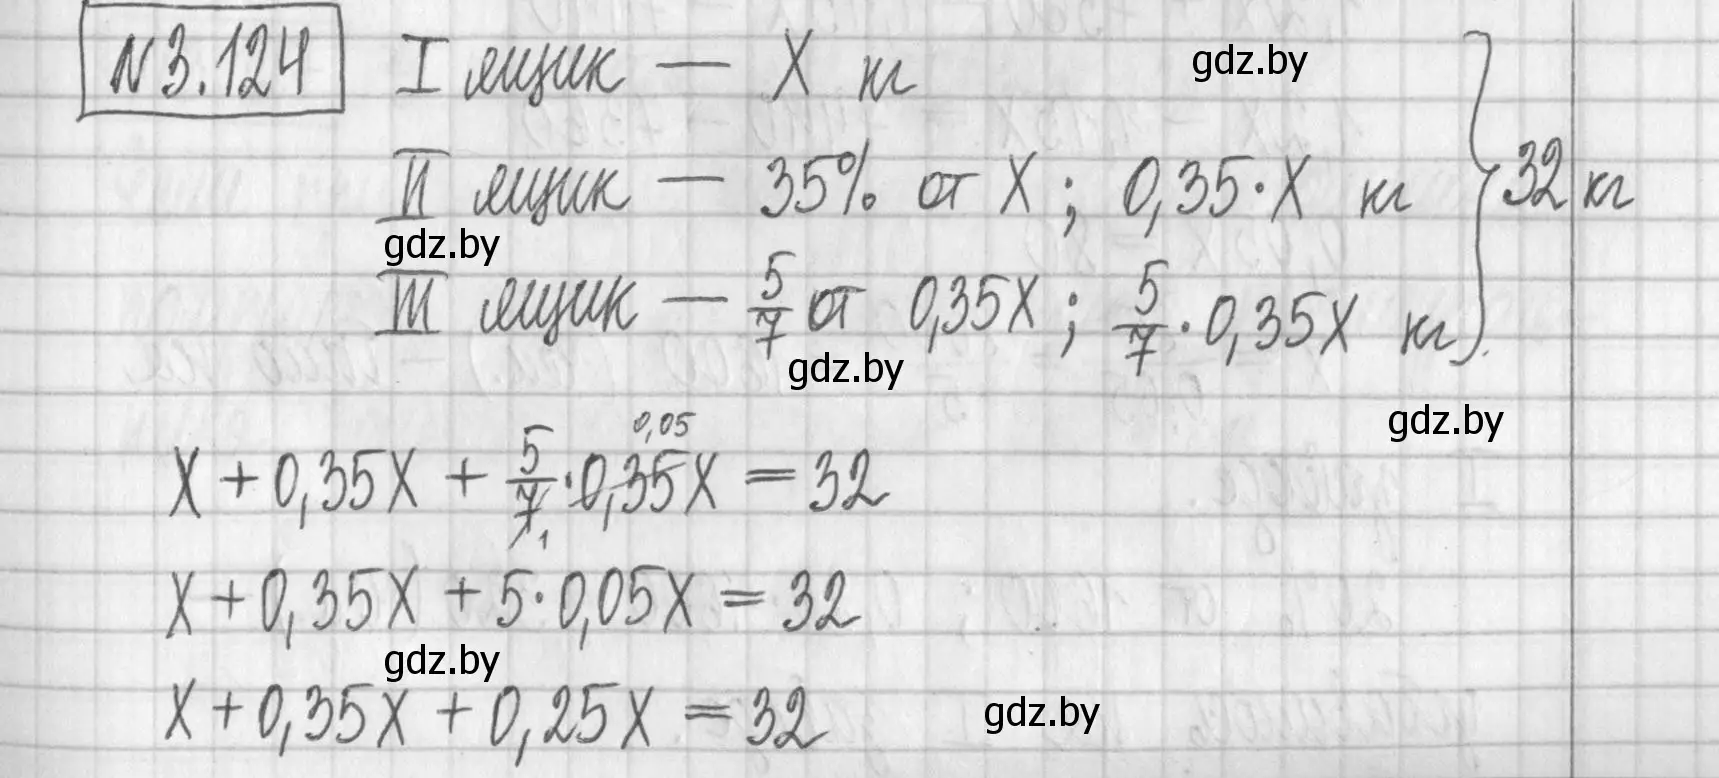 N 3.124 I ящик — X кг gdz.by
II ящик — 35% от X ; 0,35·X кг 32 кг
gdz.by
III ящик — 5/7 от 0,35X ; 5/7 · 0,35X кг
gdz.by
gdz.by
0,05
X + 0,35X + 5/7 · 0,35X = 32
1
X + 0,35X + 5·0,05X = 32
gdz.by
X + 0,35X + 0,25X = 32 gdz.by